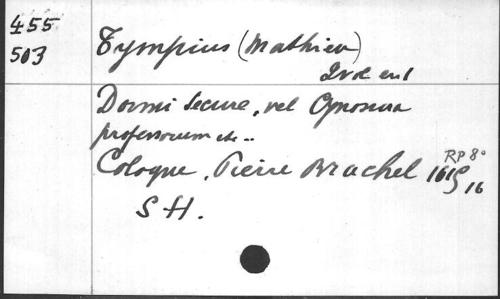 455
503
Tympius (Mathieu)
2 vol en 1
Dormi Secure, vel Cynosura
professorum etc..
Cologne, Pierre Brachel 1615
16
RP 8°
S H.